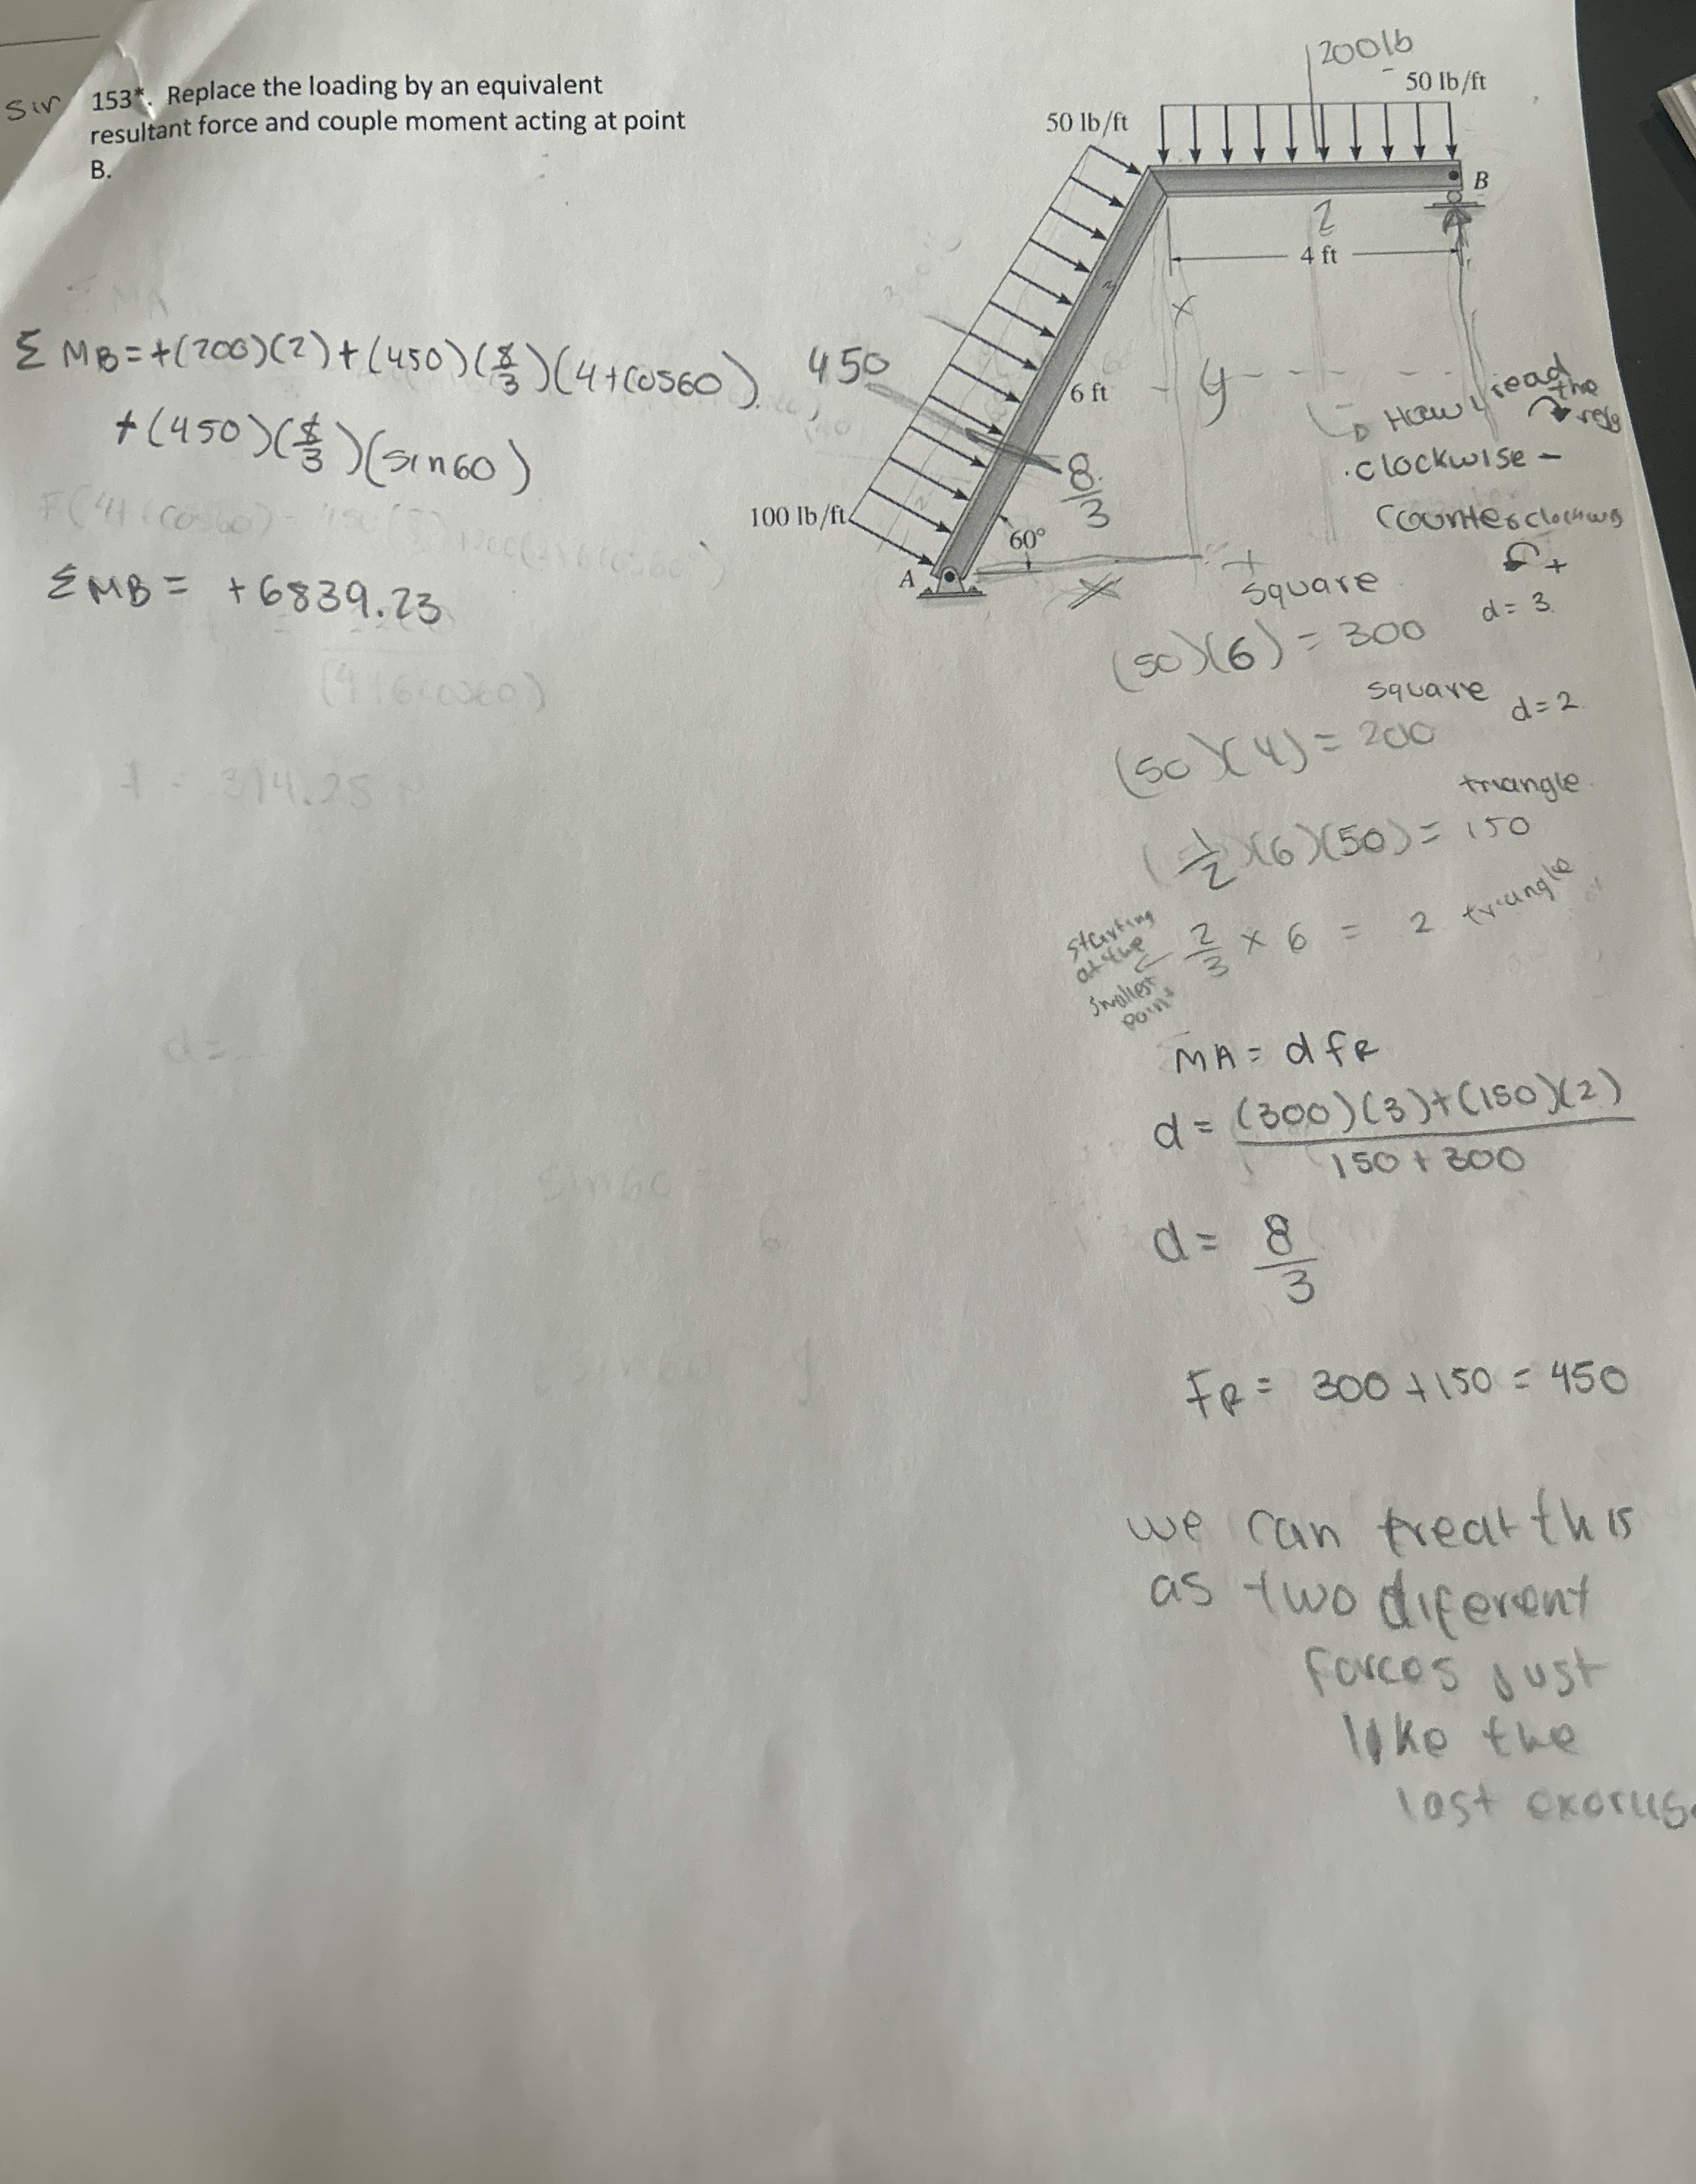 Sir
153*. Replace the loading by an equivalent
resultant force and couple moment acting at point
B.
200lb
50 lb/ft
50 lb/ft
B
2
4 ft
x
Σ MB = +(200)(2) + (450)(8/3)(4+cos60)
+ (450)(8/3)(sin60)
450
6 ft
y
How I read the
clockwise -
Counterclockwis
+
8/3
100 lb/ft
60°
A
x
Σ MB = +6839.23
F(4+6cos60)
(4+6cos60)
square
(50)(6) = 300
d = 3
square
(50)(4) = 200
d = 2
triangle
(1/2)(6)(50) = 150
starting
at the
smallest
point
2/3 × 6 = 2 triangle
MA = d FR
d = (300)(3)+(150)(2)
150 + 300
d = 8/3
sin60 =
6
FR = 300 + 150 = 450
we can treat this
as two diferent
forces just
like the
last